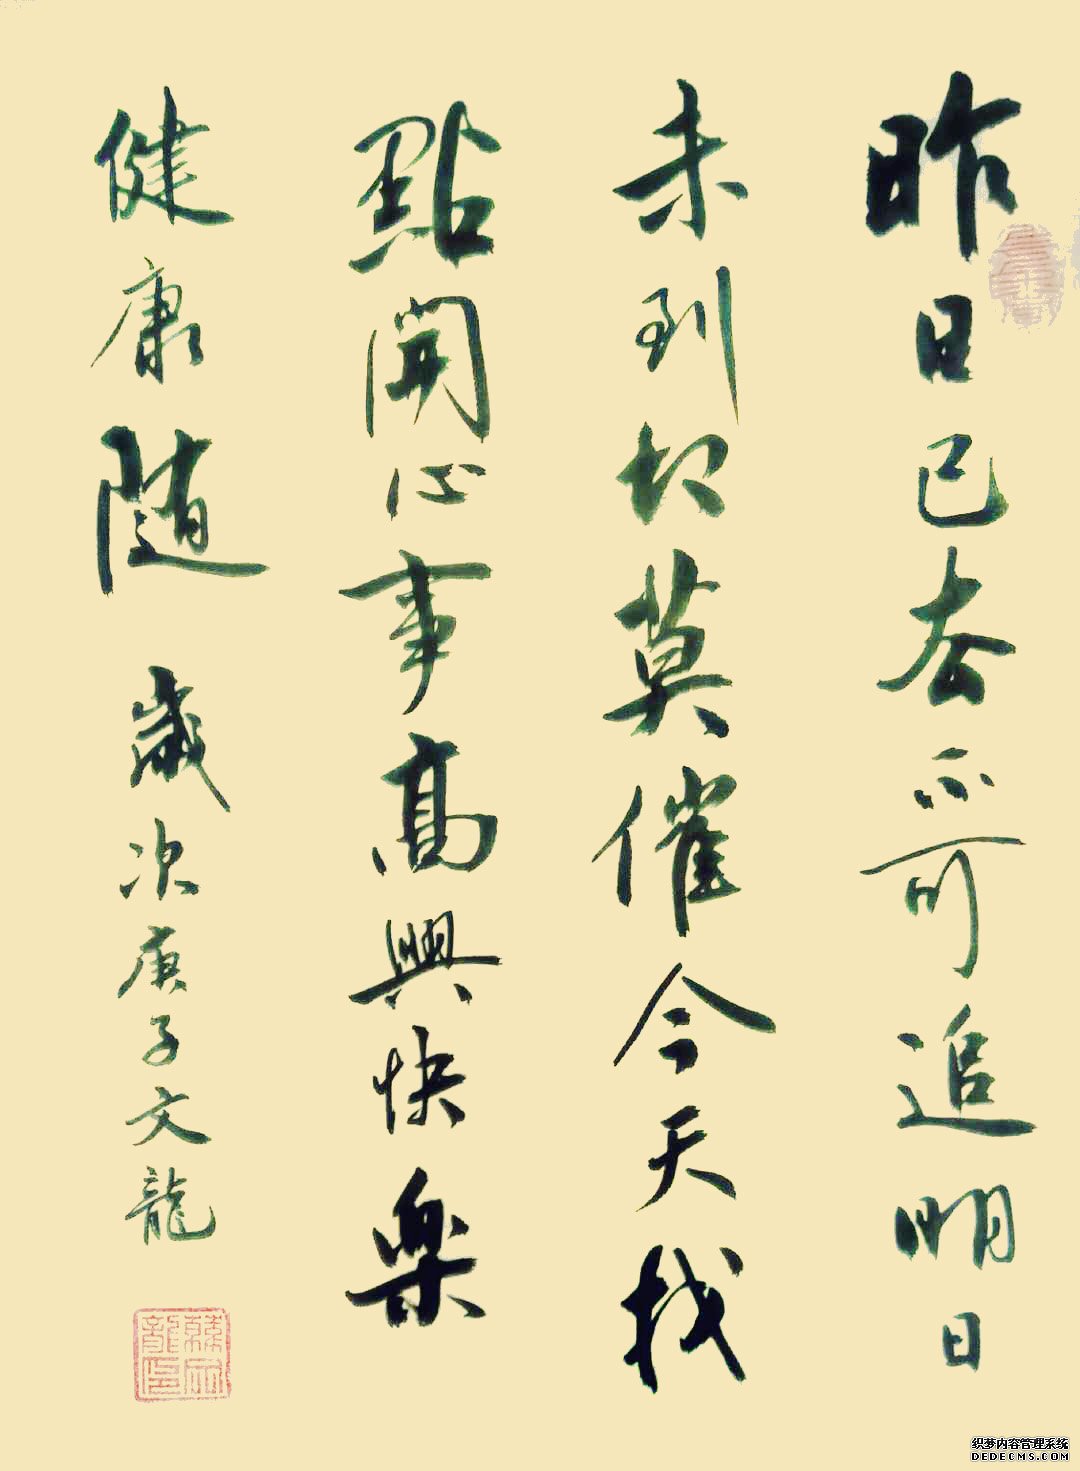 昨日已去不可追明日
未到切莫催今天找
點開心事高興快樂
健康随 歲次庚子文龍
织梦内容管理系统
DEDECMS.COM